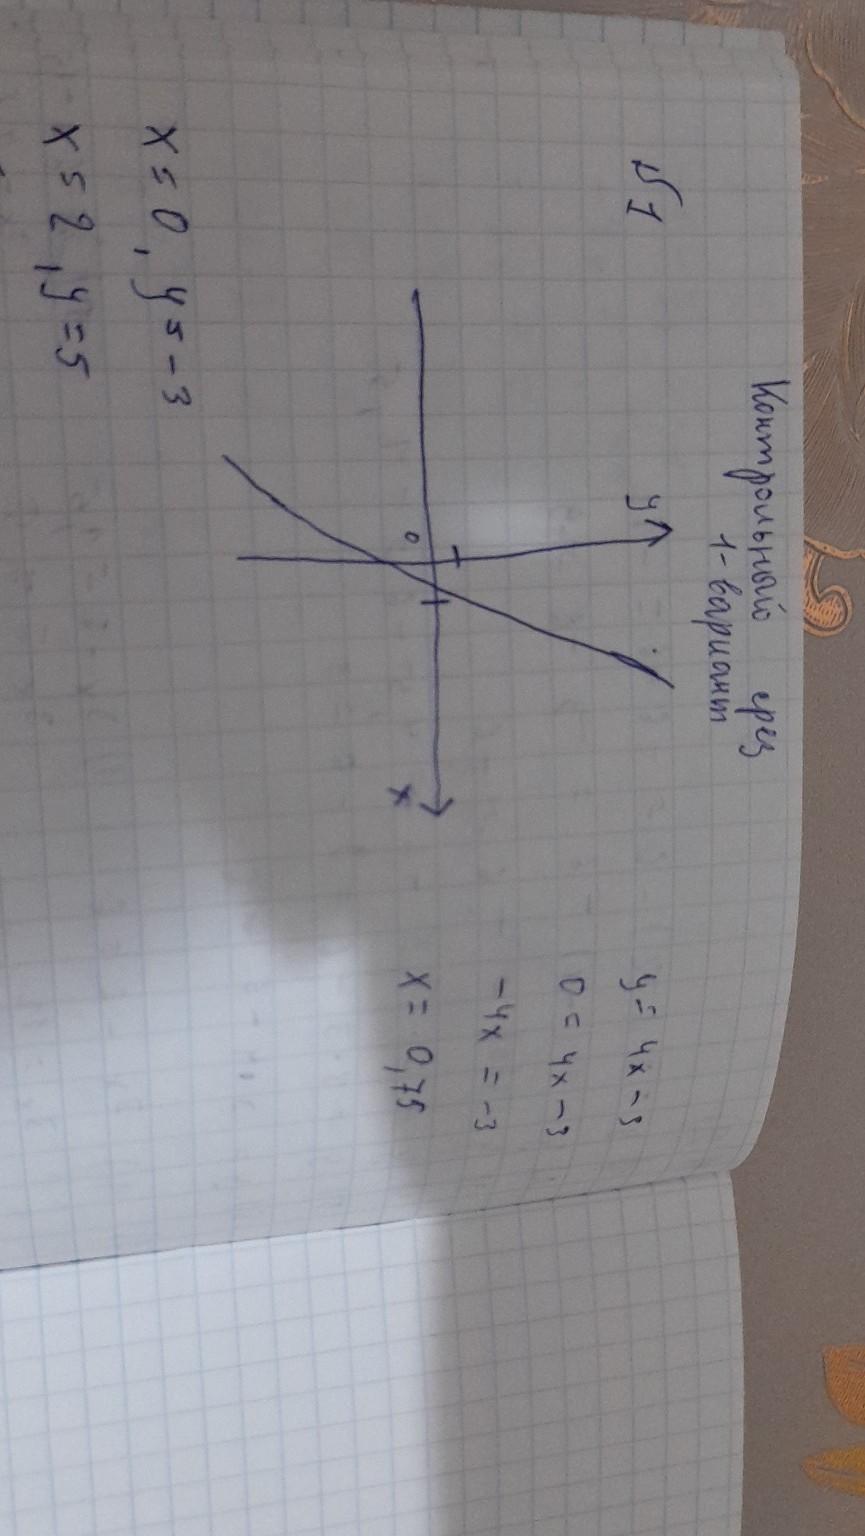 Контрольный срез
1-вариант
№1
y = 4x - 3
0 = 4x - 3
-4x = -3
x = 0,75
y
0
x
x = 0, y = -3
x = 2, y = 5